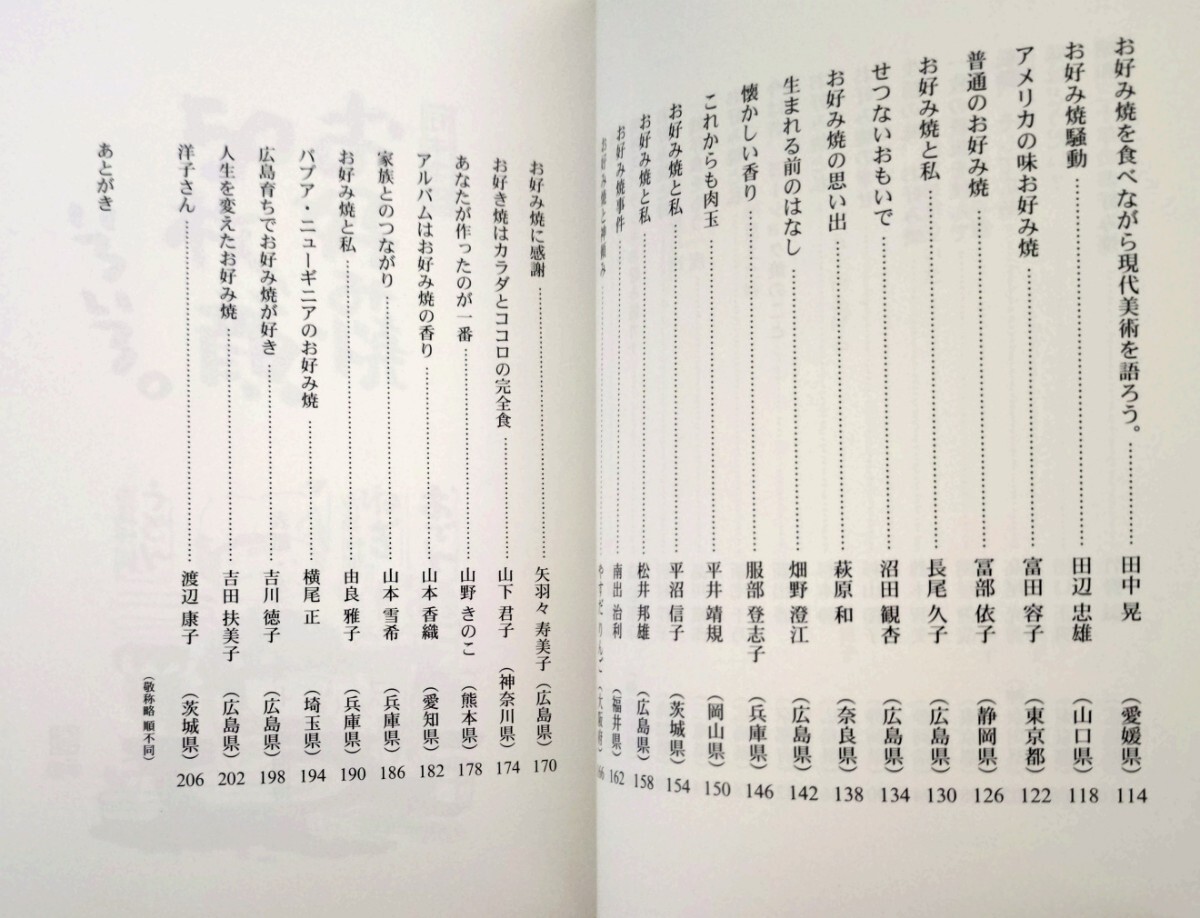 お好み焼を食べながら現代美術を語ろう。 田中 晃 (愛媛県) 114
お好み焼騒動 田辺 忠雄 (山口県) 118
アメリカの味お好み焼 富田 容子 (東京都) 122
普通のお好み焼 冨部 依子 (静岡県) 126
お好み焼と私 長尾 久子 (広島県) 130
せつないおもいで 沼田 観杏 (広島県) 134
お好み焼の思い出 萩原 和 (奈良県) 138
生まれる前のはなし 畑野 澄江 (広島県) 142
懐かしい香り 服部 登志子 (兵庫県) 146
これからも肉玉 平井 靖規 (岡山県) 150
お好み焼と私 平沼 信子 (茨城県) 154
お好み焼と私 松井 邦雄 (広島県) 158
お好み焼事件 南出 治利 (福井県) 162
お好み焼と神頼み やすだ りんご (大阪府) 166
お好み焼に感謝 矢羽々 寿美子 (広島県) 170
お好き焼はカラダとココロの完全食 山下 君子 (神奈川県) 174
あなたが作ったのが一番 山野 きのこ (熊本県) 178
アルバムはお好み焼の香り 山本 香織 (愛知県) 182
家族とのつながり 山本 雪希 (兵庫県) 186
お好み焼と私 由良 雅子 (兵庫県) 190
パプア・ニューギニアのお好み焼 横尾 正 (埼玉県) 194
広島育ちでお好み焼が好き 吉川 徳子 (広島県) 198
人生を変えたお好み焼 吉田 扶美子 (広島県) 202
洋子さん 渡辺 康子 (茨城県) 206
(敬称略 順不同)
あとがき